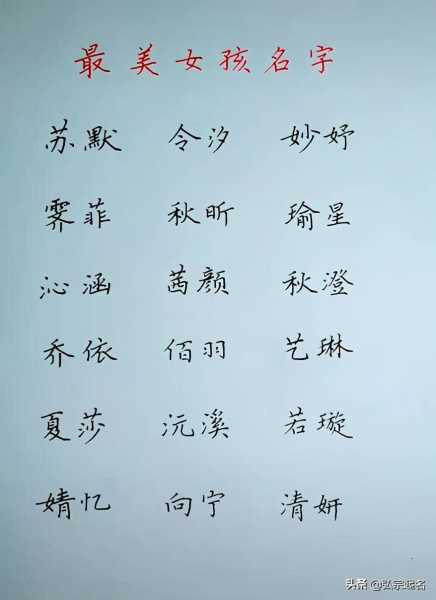 最美女孩名字
苏默 令汐 妙妤
霁菲 秋昕 瑜星
沁涵 茜颜 秋澄
乔依 佰羽 艺琳
夏莎 沅溪 若璇
婧忆 向宁 清妍
头条 @弘宗起名